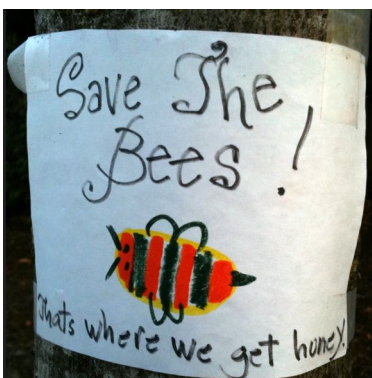 Save The
Bees!
Thats where we get honey.